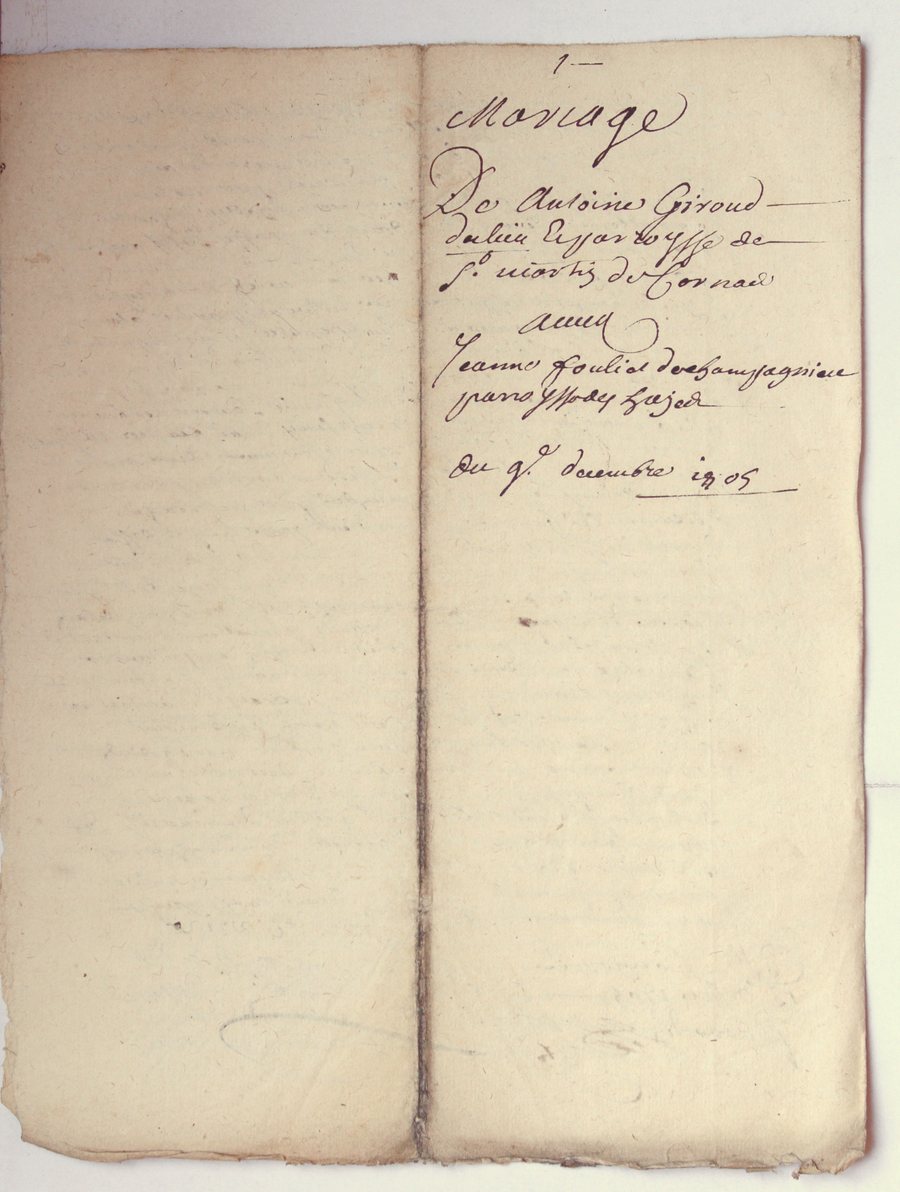 1
Mariage
De Antoine Giroud
du lieu Et parroysse de
St martin de Cornas
avec
Jeanne fouliet de champagnieu
parroysse
du 9e decembre 1705